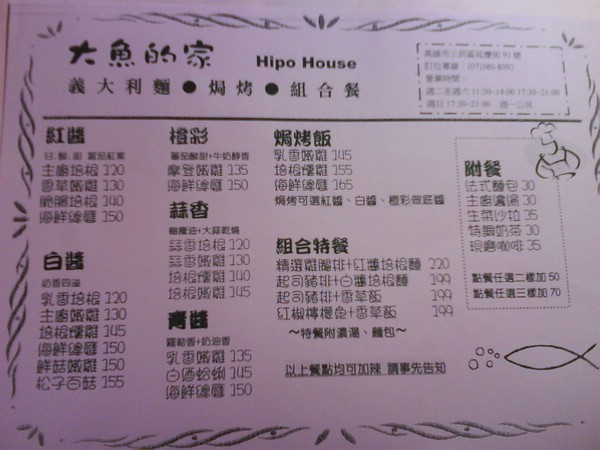 大魚的家 Hipo House
義大利麵 ● 焗烤 ● 組合餐
營業時間：
週二至週六 11:30-14:00 17:30-21:00
週日 17:30-21:00 週一公休
紅醬
甘.酸.甜 蕃茄紅葉
主廚培根 120
香草嫩雞 130
脆腸培根 140
海鮮總匯 150
白醬
奶香四溢
乳香培根 120
主廚嫩雞 130
培根燻雞 145
海鮮總匯 150
鮮菇嫩雞 150
松子百菇 155
橙彩
蕃茄酸甜+牛奶醇香
摩登嫩雞 135
海鮮總匯 150
蒜香
橄欖油+大蒜乾燒
蒜香培根 120
蒜香嫩雞 130
培根燻雞 140
培根嫩雞 145
青醬
羅勒香+奶油香
乳香嫩雞 135
白酒蛤蜊 145
海鮮總匯 150
焗烤飯
乳香嫩雞 145
培根燻雞 155
海鮮總匯 165
焗烤可選紅醬、白醬、橙彩做底醬
組合特餐
精選雞腿排+紅醬培根麵 220
起司豬排+白醬培根麵 199
起司豬排+香草飯 199
紅椒檸檬魚+香草飯 199
～特餐附濃湯、麵包～
以上餐點均可加辣 請事先告知
附餐
法式麵包 30
主廚濃湯 30
生菜沙拉 35
特調奶茶 30
現磨咖啡 35
點餐任選二樣加 50
點餐任選三樣加 70